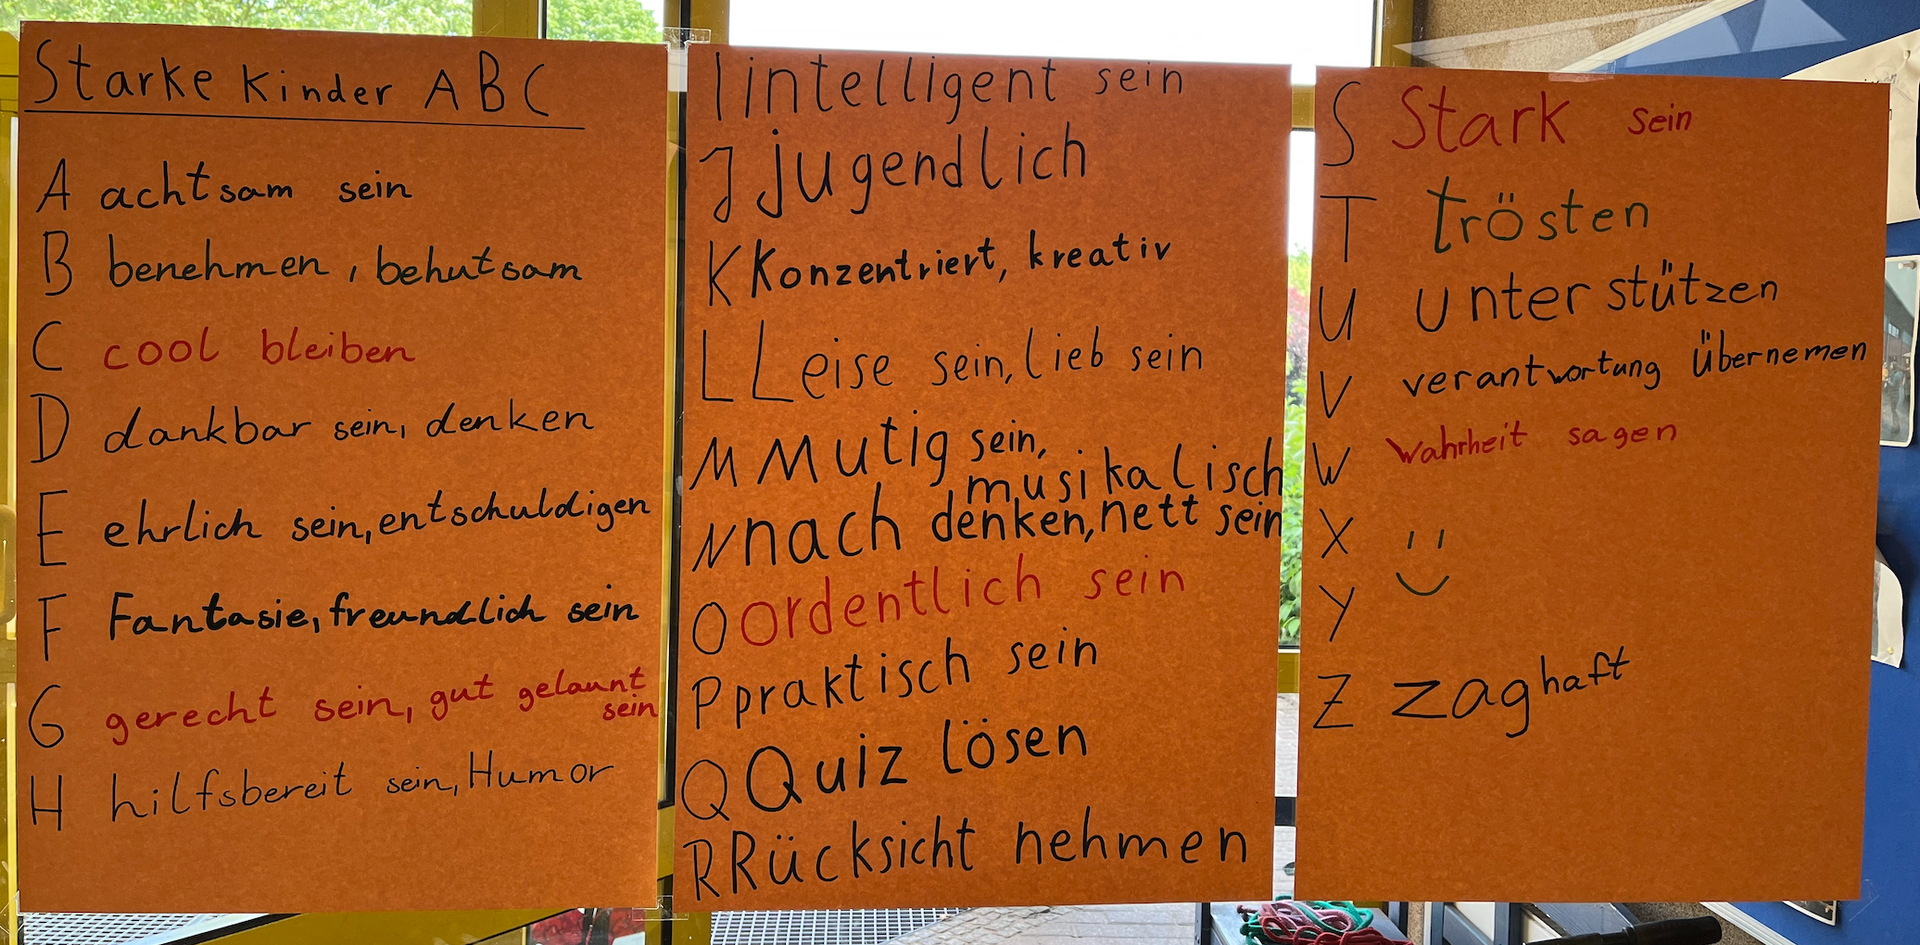 Starke Kinder ABC
A achtsam sein
B benehmen, behutsam
C cool bleiben
D dankbar sein, denken
E ehrlich sein, entschuldigen
F Fantasie, freundlich sein
G gerecht sein, gut gelaunt
sein
H hilfsbereit sein, Humor
I intelligent sein
J jugendlich
K Konzentriert, kreativ
L Leise sein, lieb sein
M Mutig sein,
musikalisch
N nach denken, nett sein
O Ordentlich sein
P praktisch sein
Q Quiz lösen
R Rücksicht nehmen
S Stark sein
T trösten
U unterstützen
V verantwortung übernemen
W Wahrheit sagen
X
Y
Z zaghaft